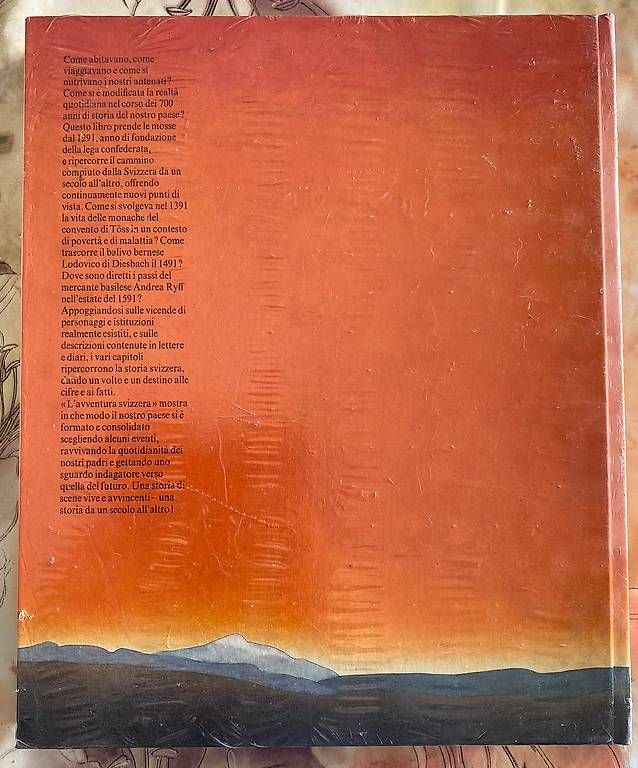 Come abitavano, come
viaggiavano e come si
nutrivano i nostri antenati?
Come si è modificata la realtà
quotidiana nel corso dei 700
anni di storia del nostro paese?
Questo libro prende le mosse
dal 1291, anno di fondazione
della lega confederata,
e ripercorre il cammino
compiuto dalla Svizzera da un
secolo all'altro, offrendo
continuamente nuovi punti di
vista. Come si svolgeva nel 1391
la vita delle monache del
convento di Töss in un contesto
di povertà e di malattia? Come
trascorre il balivo bernese
Lodovico di Diesbach il 1491?
Dove sono diretti i passi del
mercante basilese Andrea Ryff
nell'estate del 1591?
Appoggiandosi sulle vicende di
personaggi e istituzioni
realmente esistiti, e sulle
descrizioni contenute in lettere
e diari, i vari capitoli
ripercorrono la storia svizzera,
dando un volto e un destino alle
cifre e ai fatti.
«L'avventura svizzera» mostra
in che modo il nostro paese si è
formato e consolidato
scegliendo alcuni eventi,
ravvivando la quotidianità dei
nostri padri e gettando uno
sguardo indagatore verso
quella del futuro. Una storia di
scene vive e avvincenti – una
storia da un secolo all'altro!